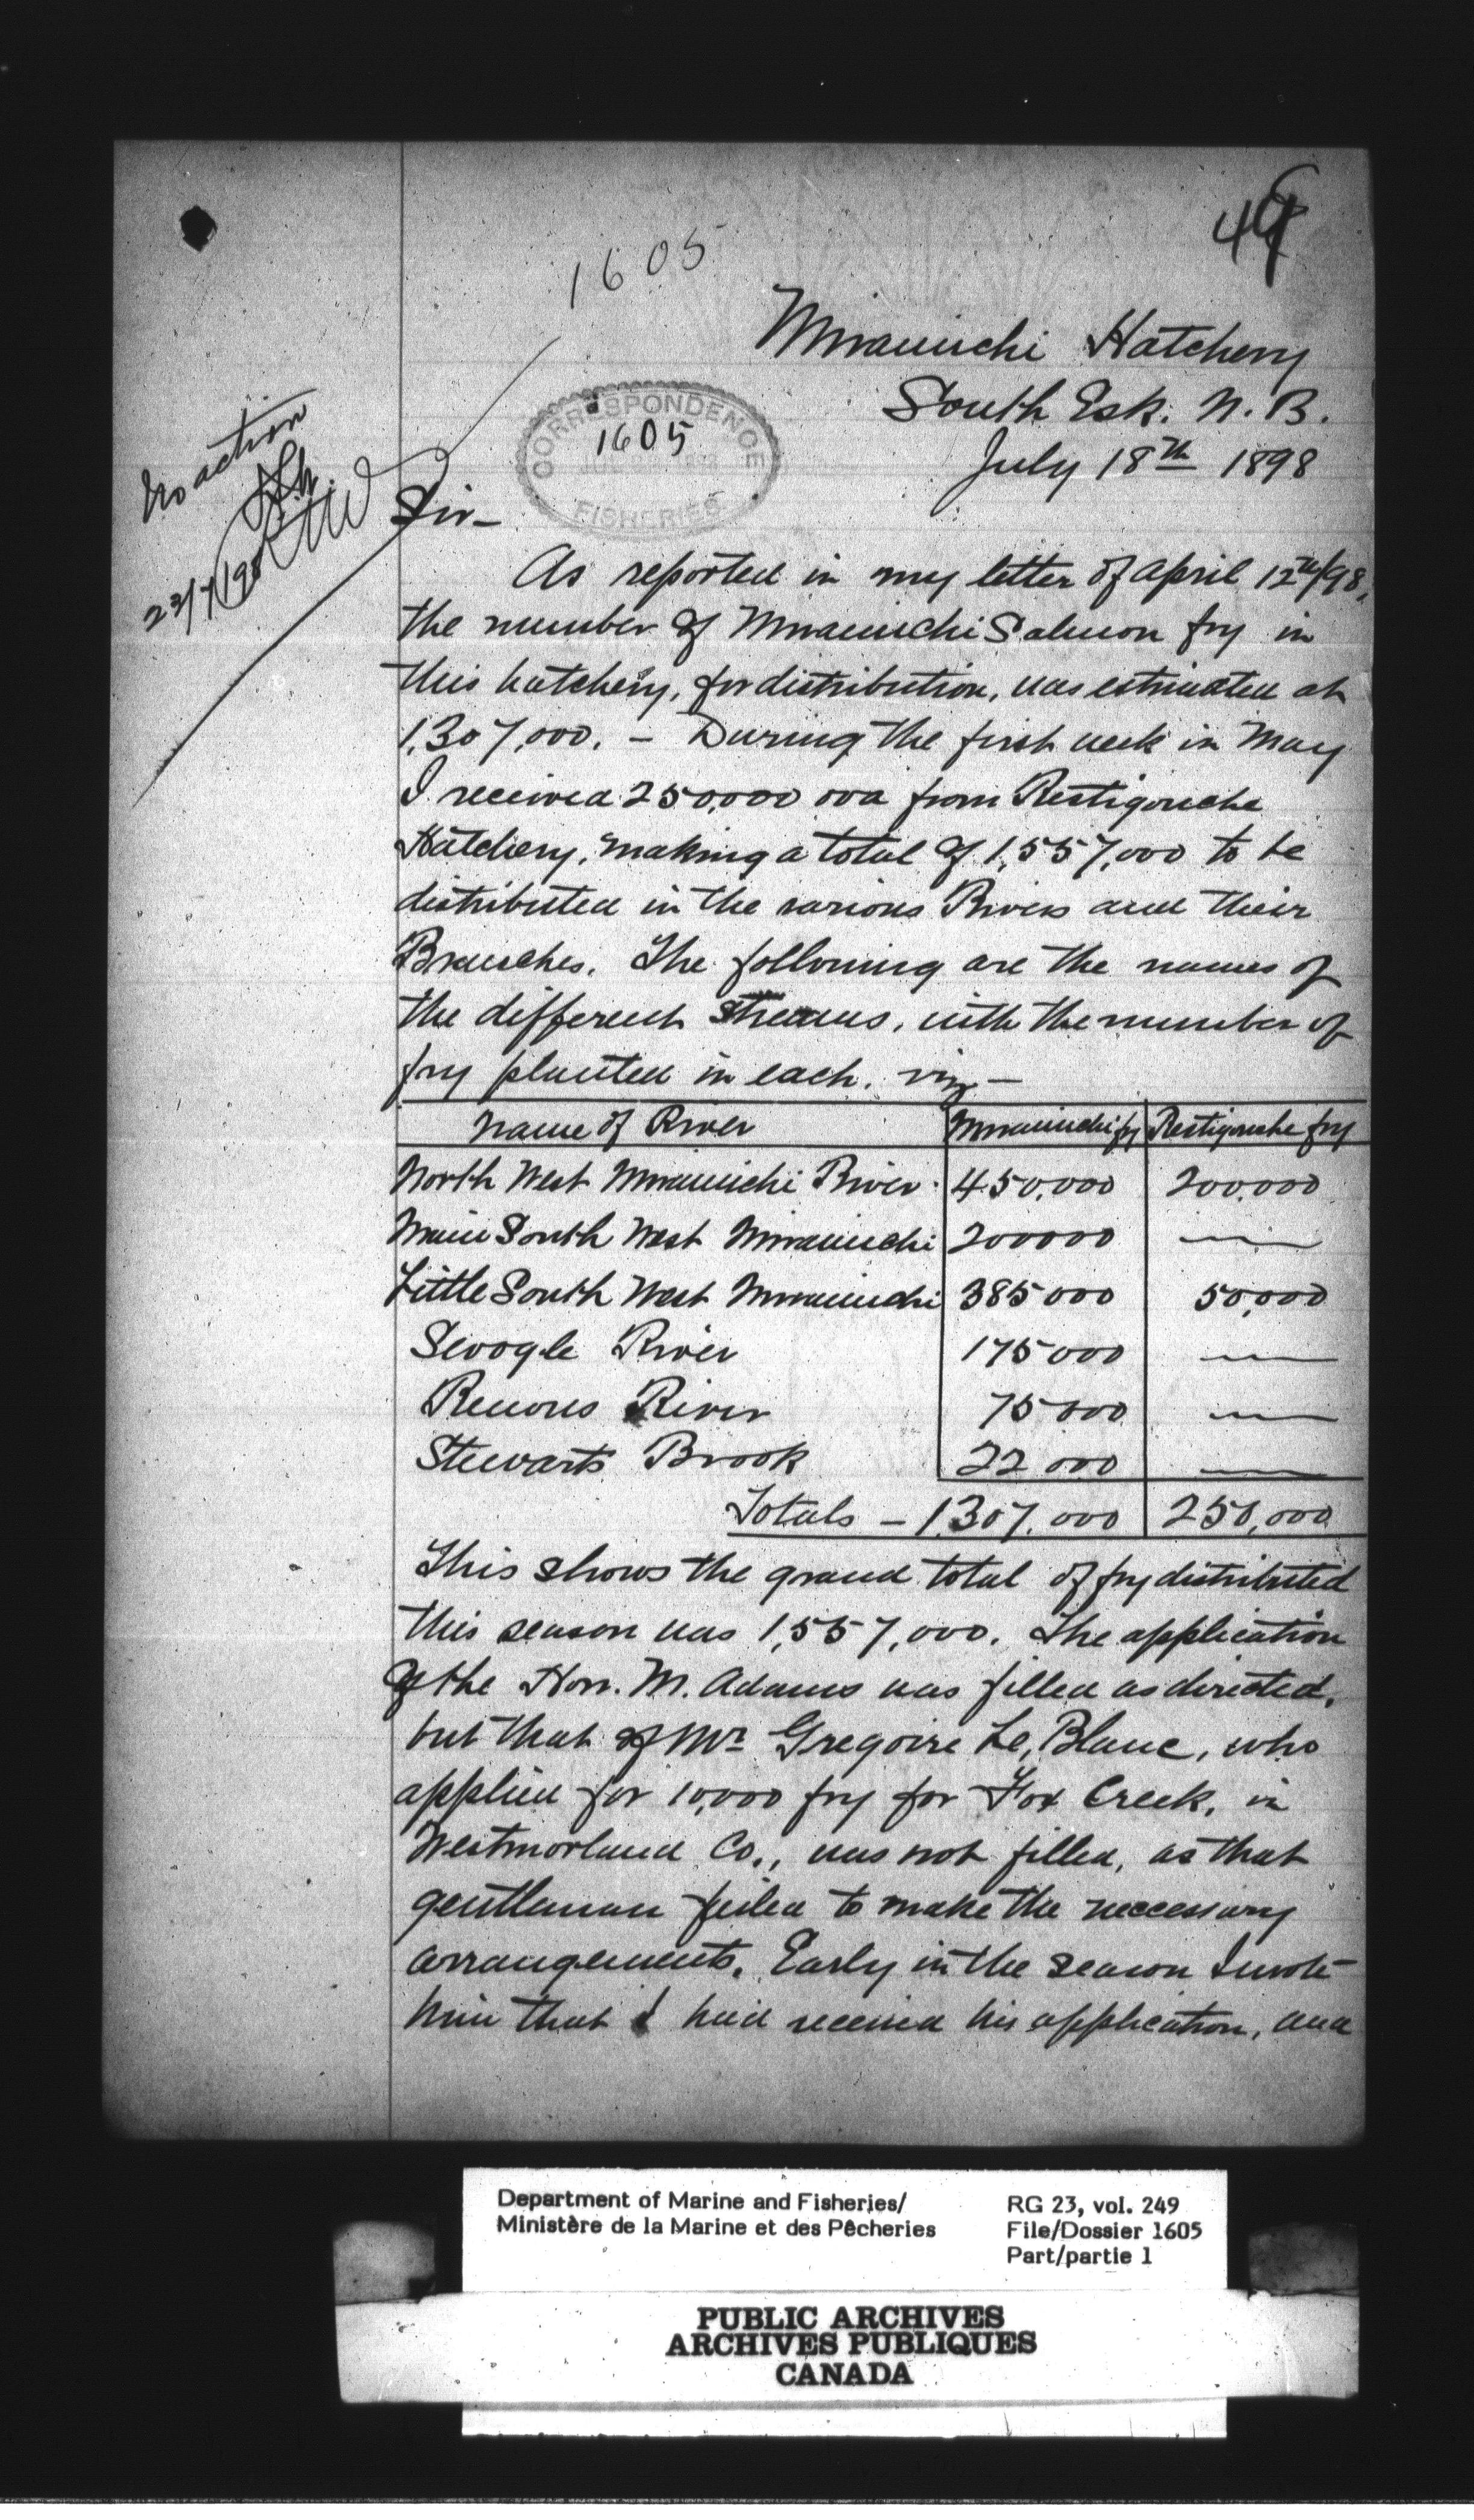 49
1605
Miramichi Hatchery
South Esk. N. B.
July 18th 1898
CORRESPONDENCE
1605
FISHERIES
No action
23/7/98
Sir—
As reported in my letter of April 12th/98,
the number of Miramichi Salmon fry in
this hatchery, for distribution, was estimated at
1,307,000. — During the first week in May
I received 250,000 ova from Restigouche
Hatchery, making a total of 1,557,000 to be
distributed in the various Rivers and their
Branches. The following are the names of
the different Streams, with the number of
fry planted in each. viz—
Name of River Miramichi fry Restigouche fry
North West Miramichi River 450,000 200,000
Main South West Miramichi 200000 —
Little South West Miramichi 385000 50,000
Sevogle River 175000 —
Renous River 75000 —
Stewarts Brook 22000 —
Totals — 1,307,000 250,000
This shows the grand total of fry distributed
this season was 1,557,000. The application
of the Hon. M. Adams was filled as directed,
but that of Mr Gregoire Le,Blanc, who
applied for 10,000 fry for Fox Creek, in
Westmorland Co., was not filled, as that
gentleman failed to make the necessary
arrangements. Early in the season I wrote
him that I had received his application, and
Department of Marine and Fisheries/
Ministère de la Marine et des Pêcheries
RG 23, vol. 249
File/Dossier 1605
Part/partie 1
PUBLIC ARCHIVES
ARCHIVES PUBLIQUES
CANADA